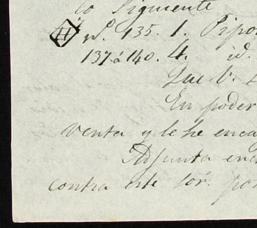 lo Siguiente
nº. 135. 1. Pipo
137 á 140. 4. id.
Que
En poder
venta y le he enca
Adjunta enc
contra este Sor. po